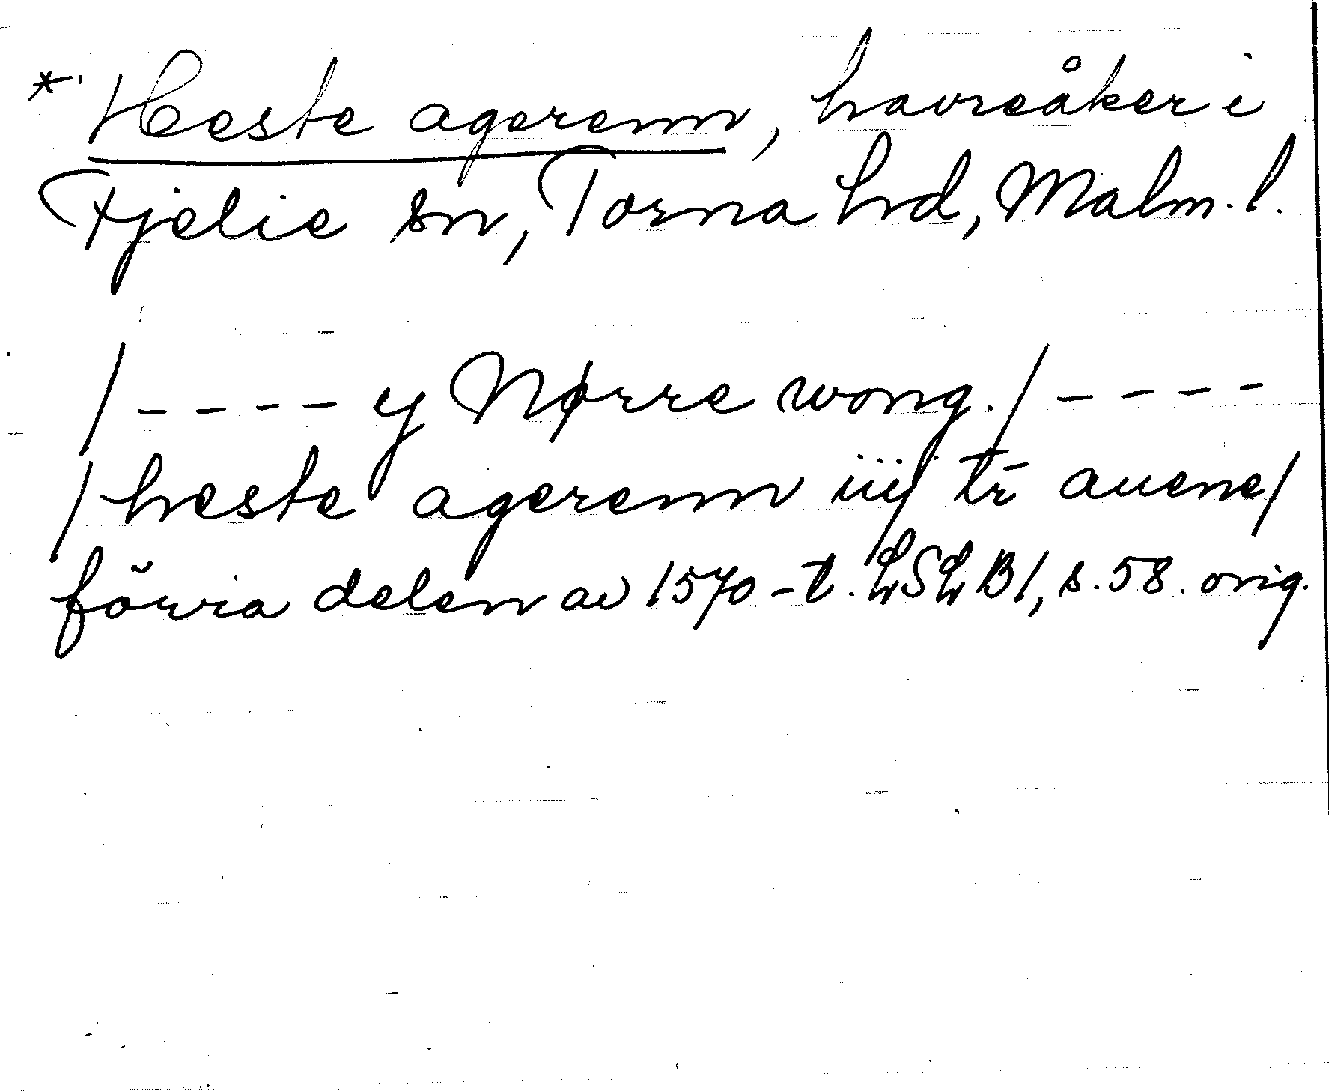 * Heste agerenn, havreåker i
Fjelie sn, Torna hd, Malm. l.
/ - - - - y Nørre wong. / - - - -
/ heste agerenn iiij tr̄ auene /
förra delen av 1570-t. LSLB1, s. 58. orig.